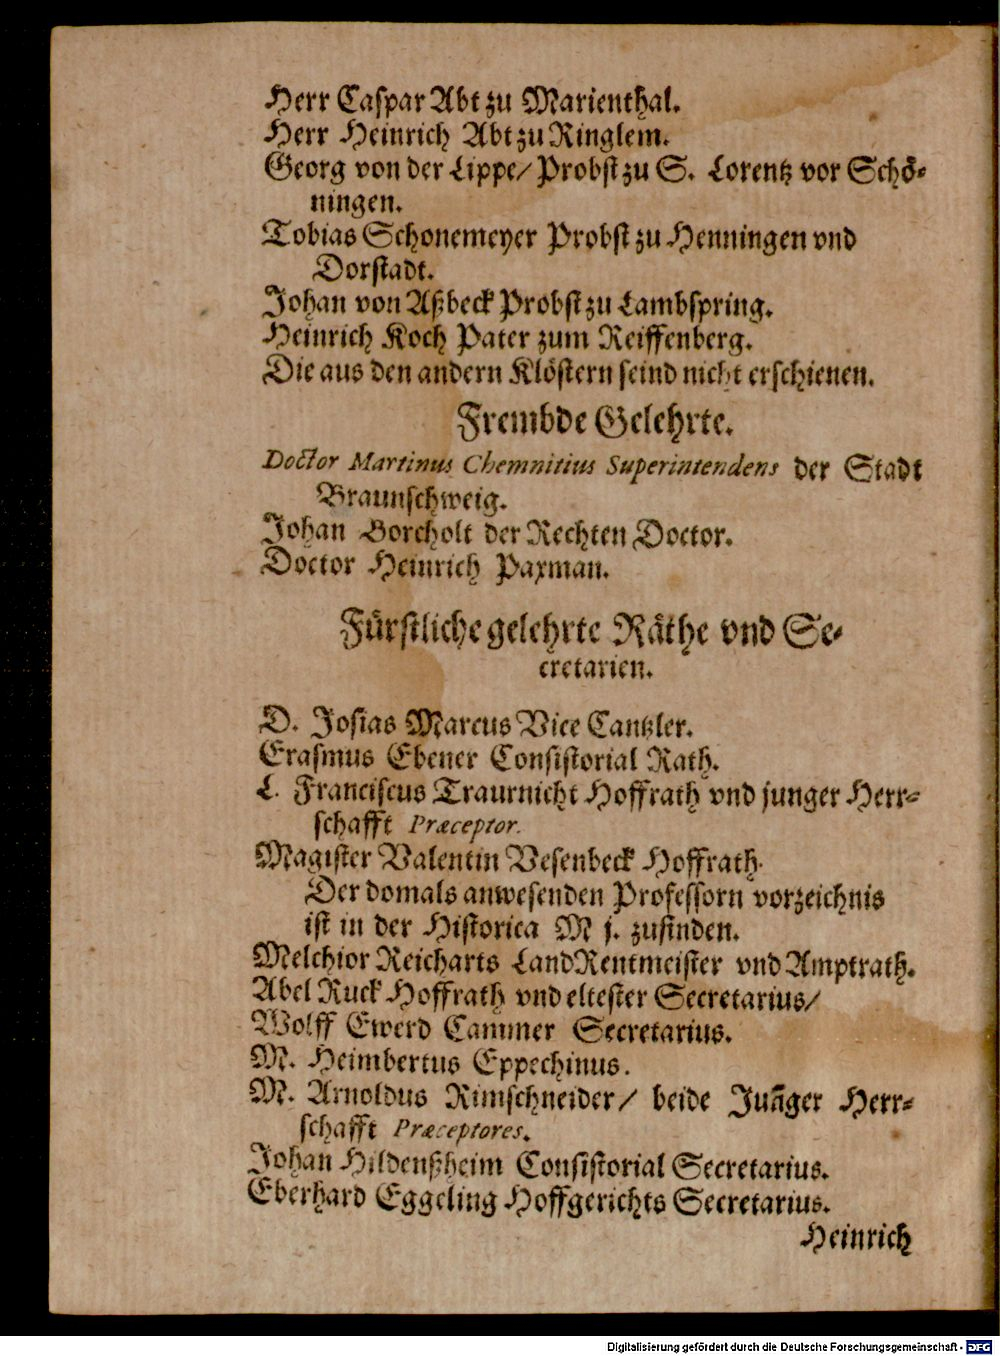 Herr Caspar Abt zu Marienthal.
Herr Heinrich Abt zu Ringlem.
Georg von der Lippe/ Probst zu S. Lorentz vor Schö-
ningen.
Tobias Schonemeyer Probst zu Henningen vnd
Dorstadt.
Johan von Aßbeck Probst zu Lambspring.
Heinrich Koch Pater zum Reiffenberg.
Die aus den andern Klöstern seind nicht erschienen.
Frembde Gelehrte.
Doctor Martinus Chemnitius Superintendens der Stadt
Braunschweig.
Johan Borcholt der Rechten Doctor.
Doctor Heinrich Paxman.
Fürstliche gelehrte Räthe vnd Se-
cretarien.
D. Josias Marcus Vice Cantzler.
Erasmus Ebener Consistorial Rath.
L. Franciscus Traurnicht Hoffrath vnd junger Herr-
schafft Præceptor.
Magister Valentin Vesenbeck Hoffrath.
Der domals anwesenden Professorn vorzeichnis
ist in der Historica M j. zufinden.
Melchior Reicharts LandRentmeister vnd Amptrath.
Abel Ruck Hoffrath vnd eltester Secretarius/
Wolff Ewerd Cammer Secretarius.
M. Heimbertus Eppechinus.
M. Arnoldus Rimschneider/ beide Jun̄ger Herr-
schafft Præceptores.
Johan Hildenßheim Consistorial Secretarius.
Eberhard Eggeling Hoffgerichts Secretarius.
Heinrich
Digitalisierung gefördert durch die Deutsche Forschungsgemeinschaft - DFG